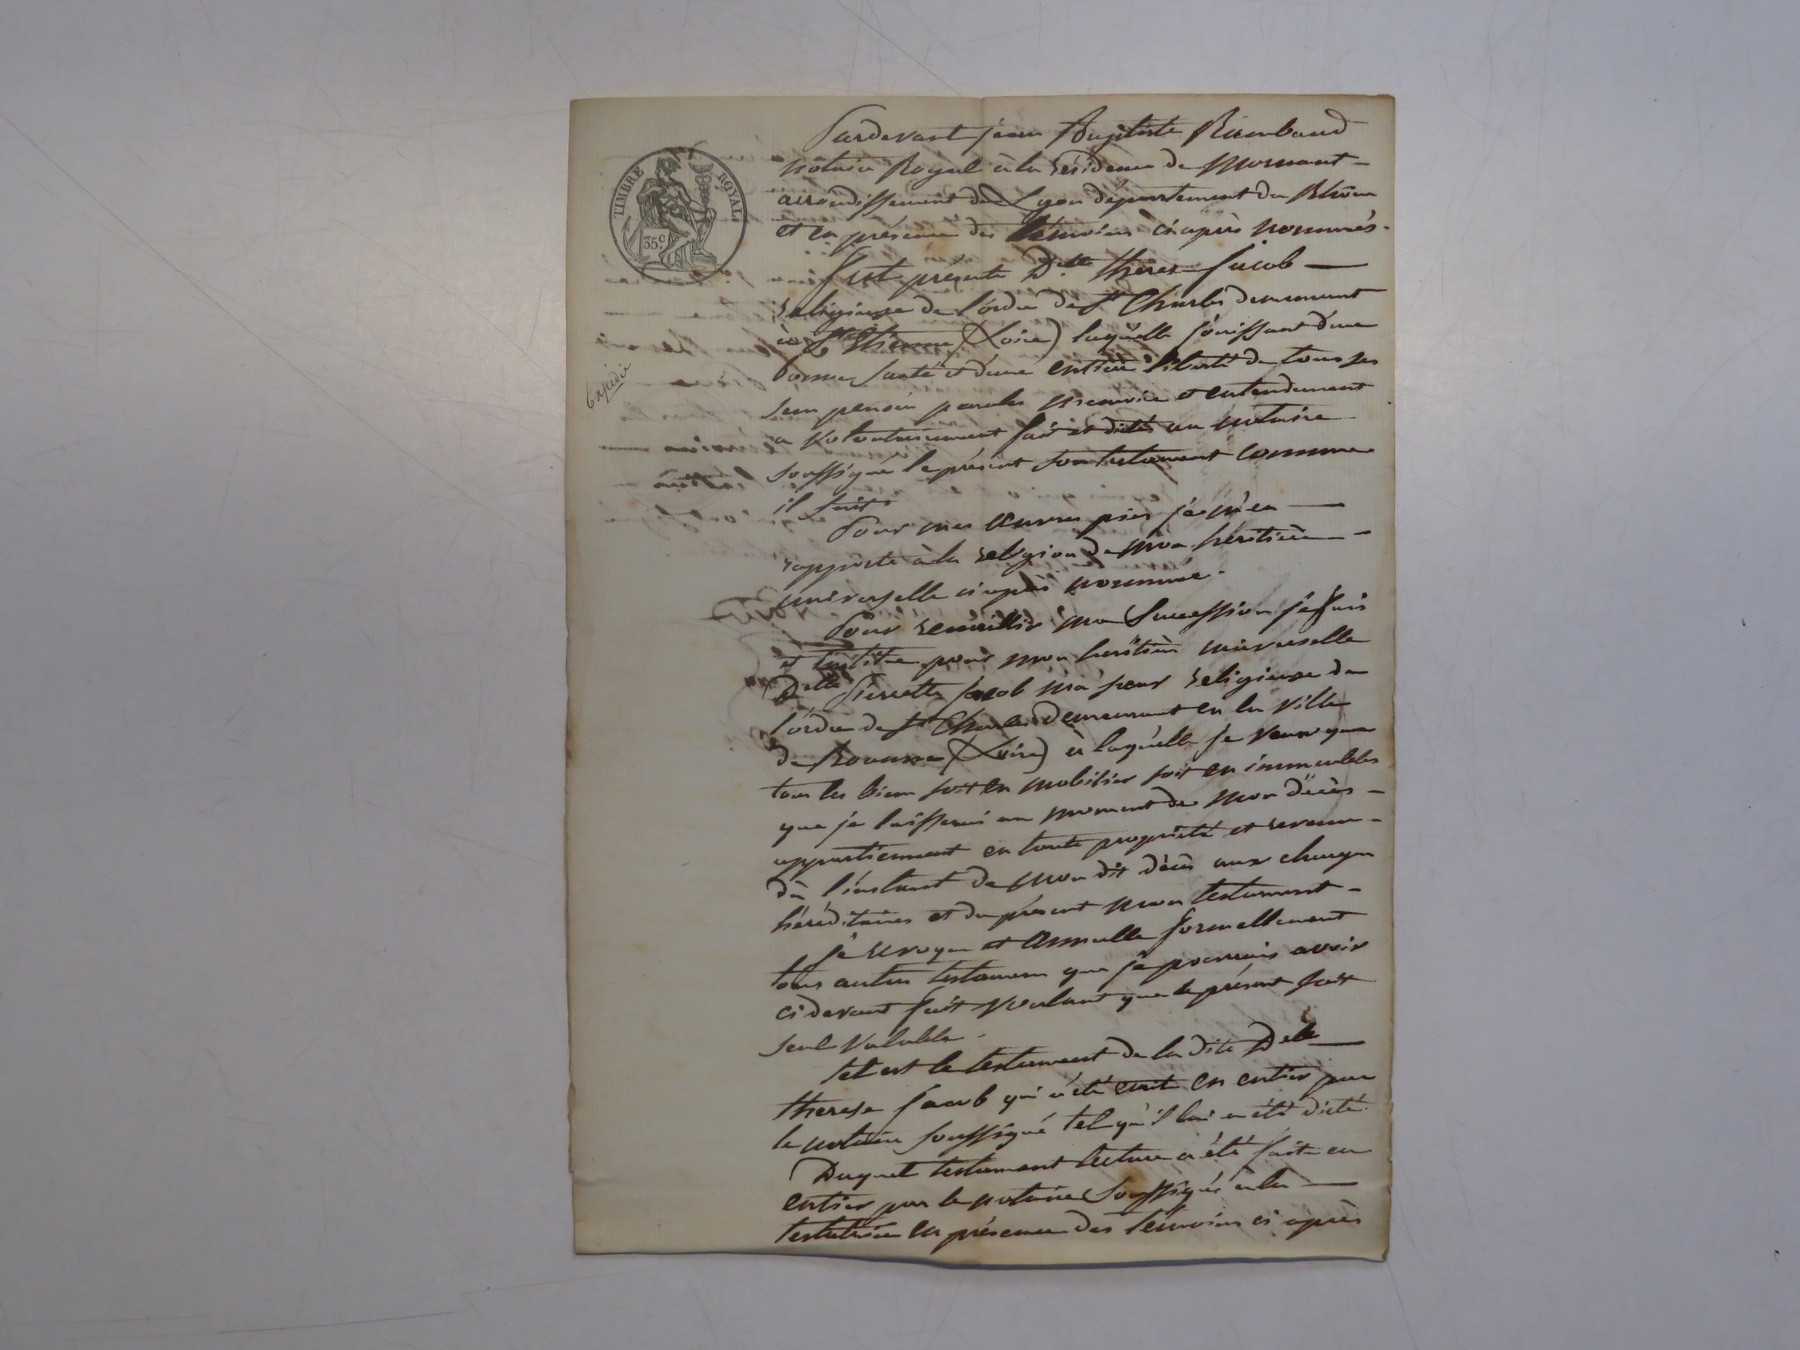 TIMBRE ROYAL
35c
Expédié
Pardevant jean Baptiste Raimbaud
notaire Royal à la résidence de Mornant
arrondissement de Lyon département du Rhône
et en présence des témoins ci après nommés.
fut présente Delle therese Jacob
religieuse de l'ordre de St Charles demeurant
à St Etienne (Loire) laquelle jouissant d'une
bonne santé et d'une entière liberté de tous ses
sens pensée paroles mémoire et entendement
a volontairement fait et dicté au notaire
soussigné le présent son testament comme
il suit
Pour mes œuvres pies je m'en
rapporte à la religion de mon héritière
universelle ci après nommée.
Pour recueillir ma succession je fais
et institue pour mon héritière universelle
Delle Pierrette Jacob ma sœur religieuse de
l'ordre de St Charles demeurant en la ville
de Roanne (Loire) à laquelle je veux que
tous les biens soit en mobilier soit en immeubles
que je laisserai au moment de mon décès
appartiennent en toute propriété et revenu
dès l'instant de mon dit décès aux charges
héréditaires et du présent mon testament
je revoque et annulle formellement
tous autres testamens que je pourrais avoir
ci devant fait voulant que le présent soit
seul valable.
tel est le testament de la dite Delle
therese Jacob qui a été écrit en entier par
le notaire soussigné tel qu'il lui a été dicté.
Duquel testament lecture a été faite en
entier par le notaire soussigné à la
testatrice en présence des témoins ci après